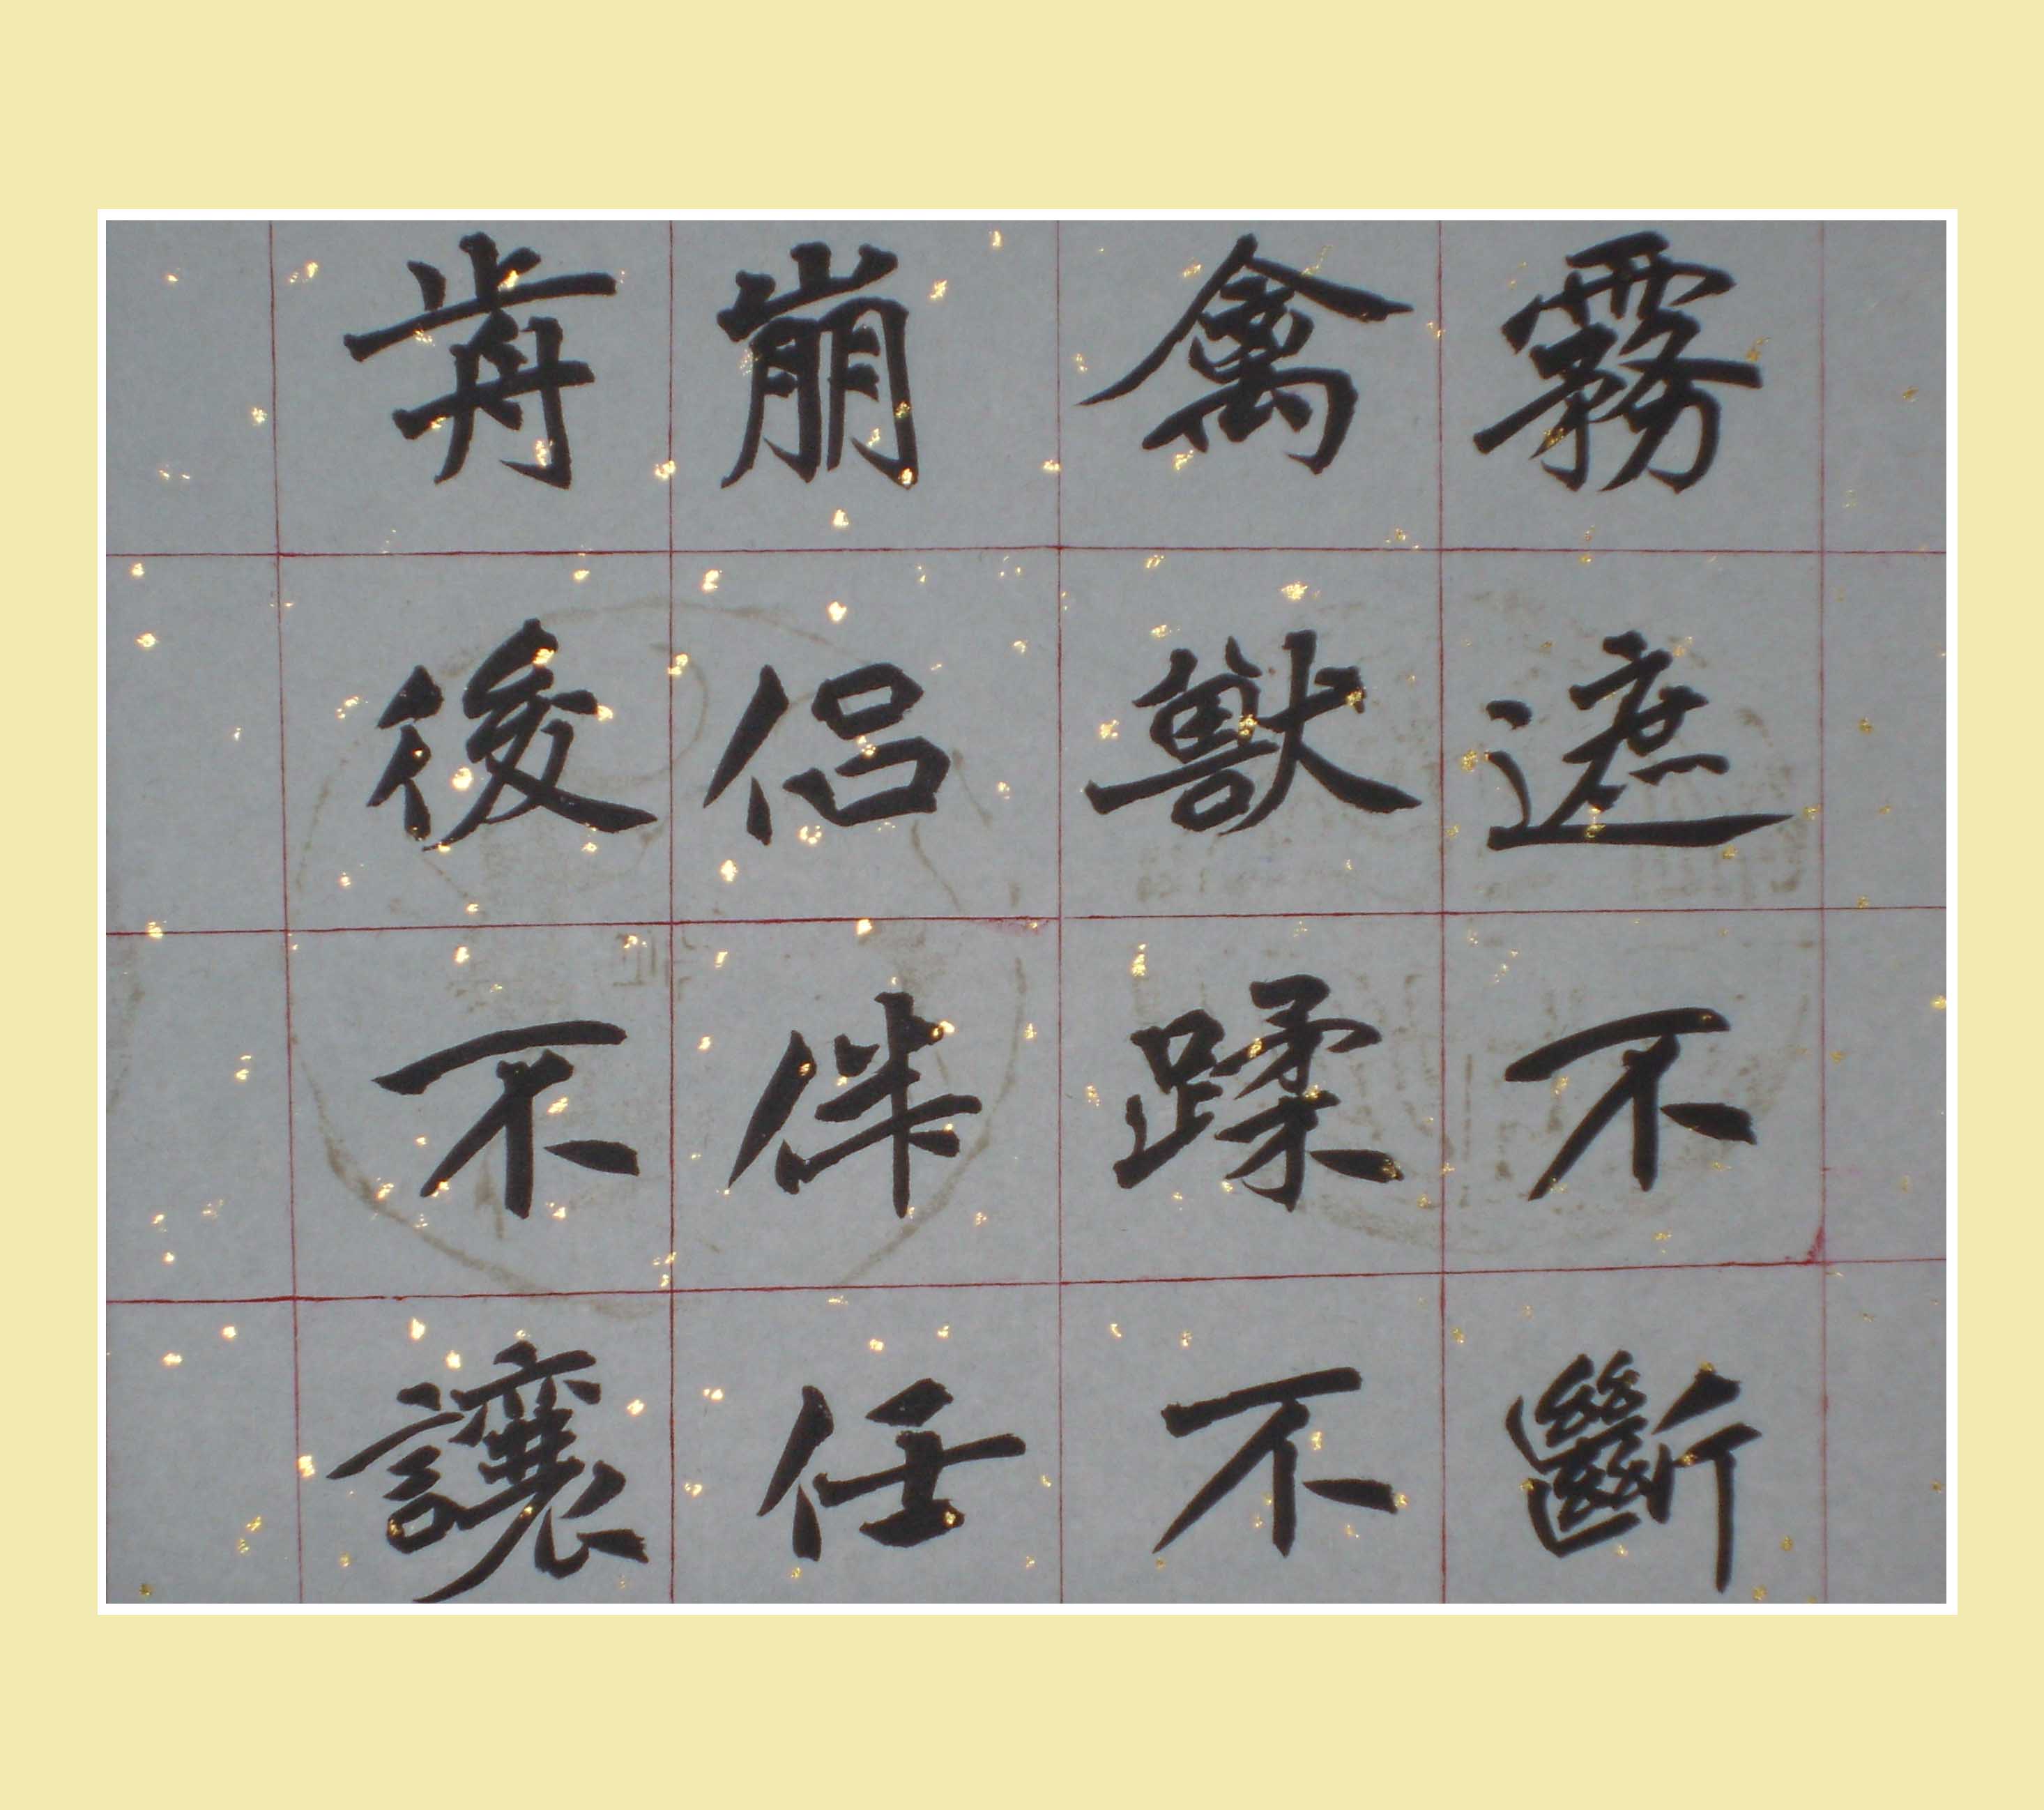 霧遮不斷
禽獸蹂不
崩侣伴任
歬後不讓